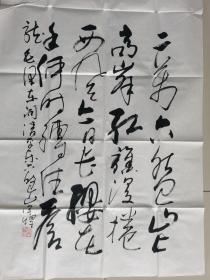 二萬六盤山上
高峰红旗漫捲
西风今日长缨在
手何时缚住苍
龙毛泽东词清平乐六盘山